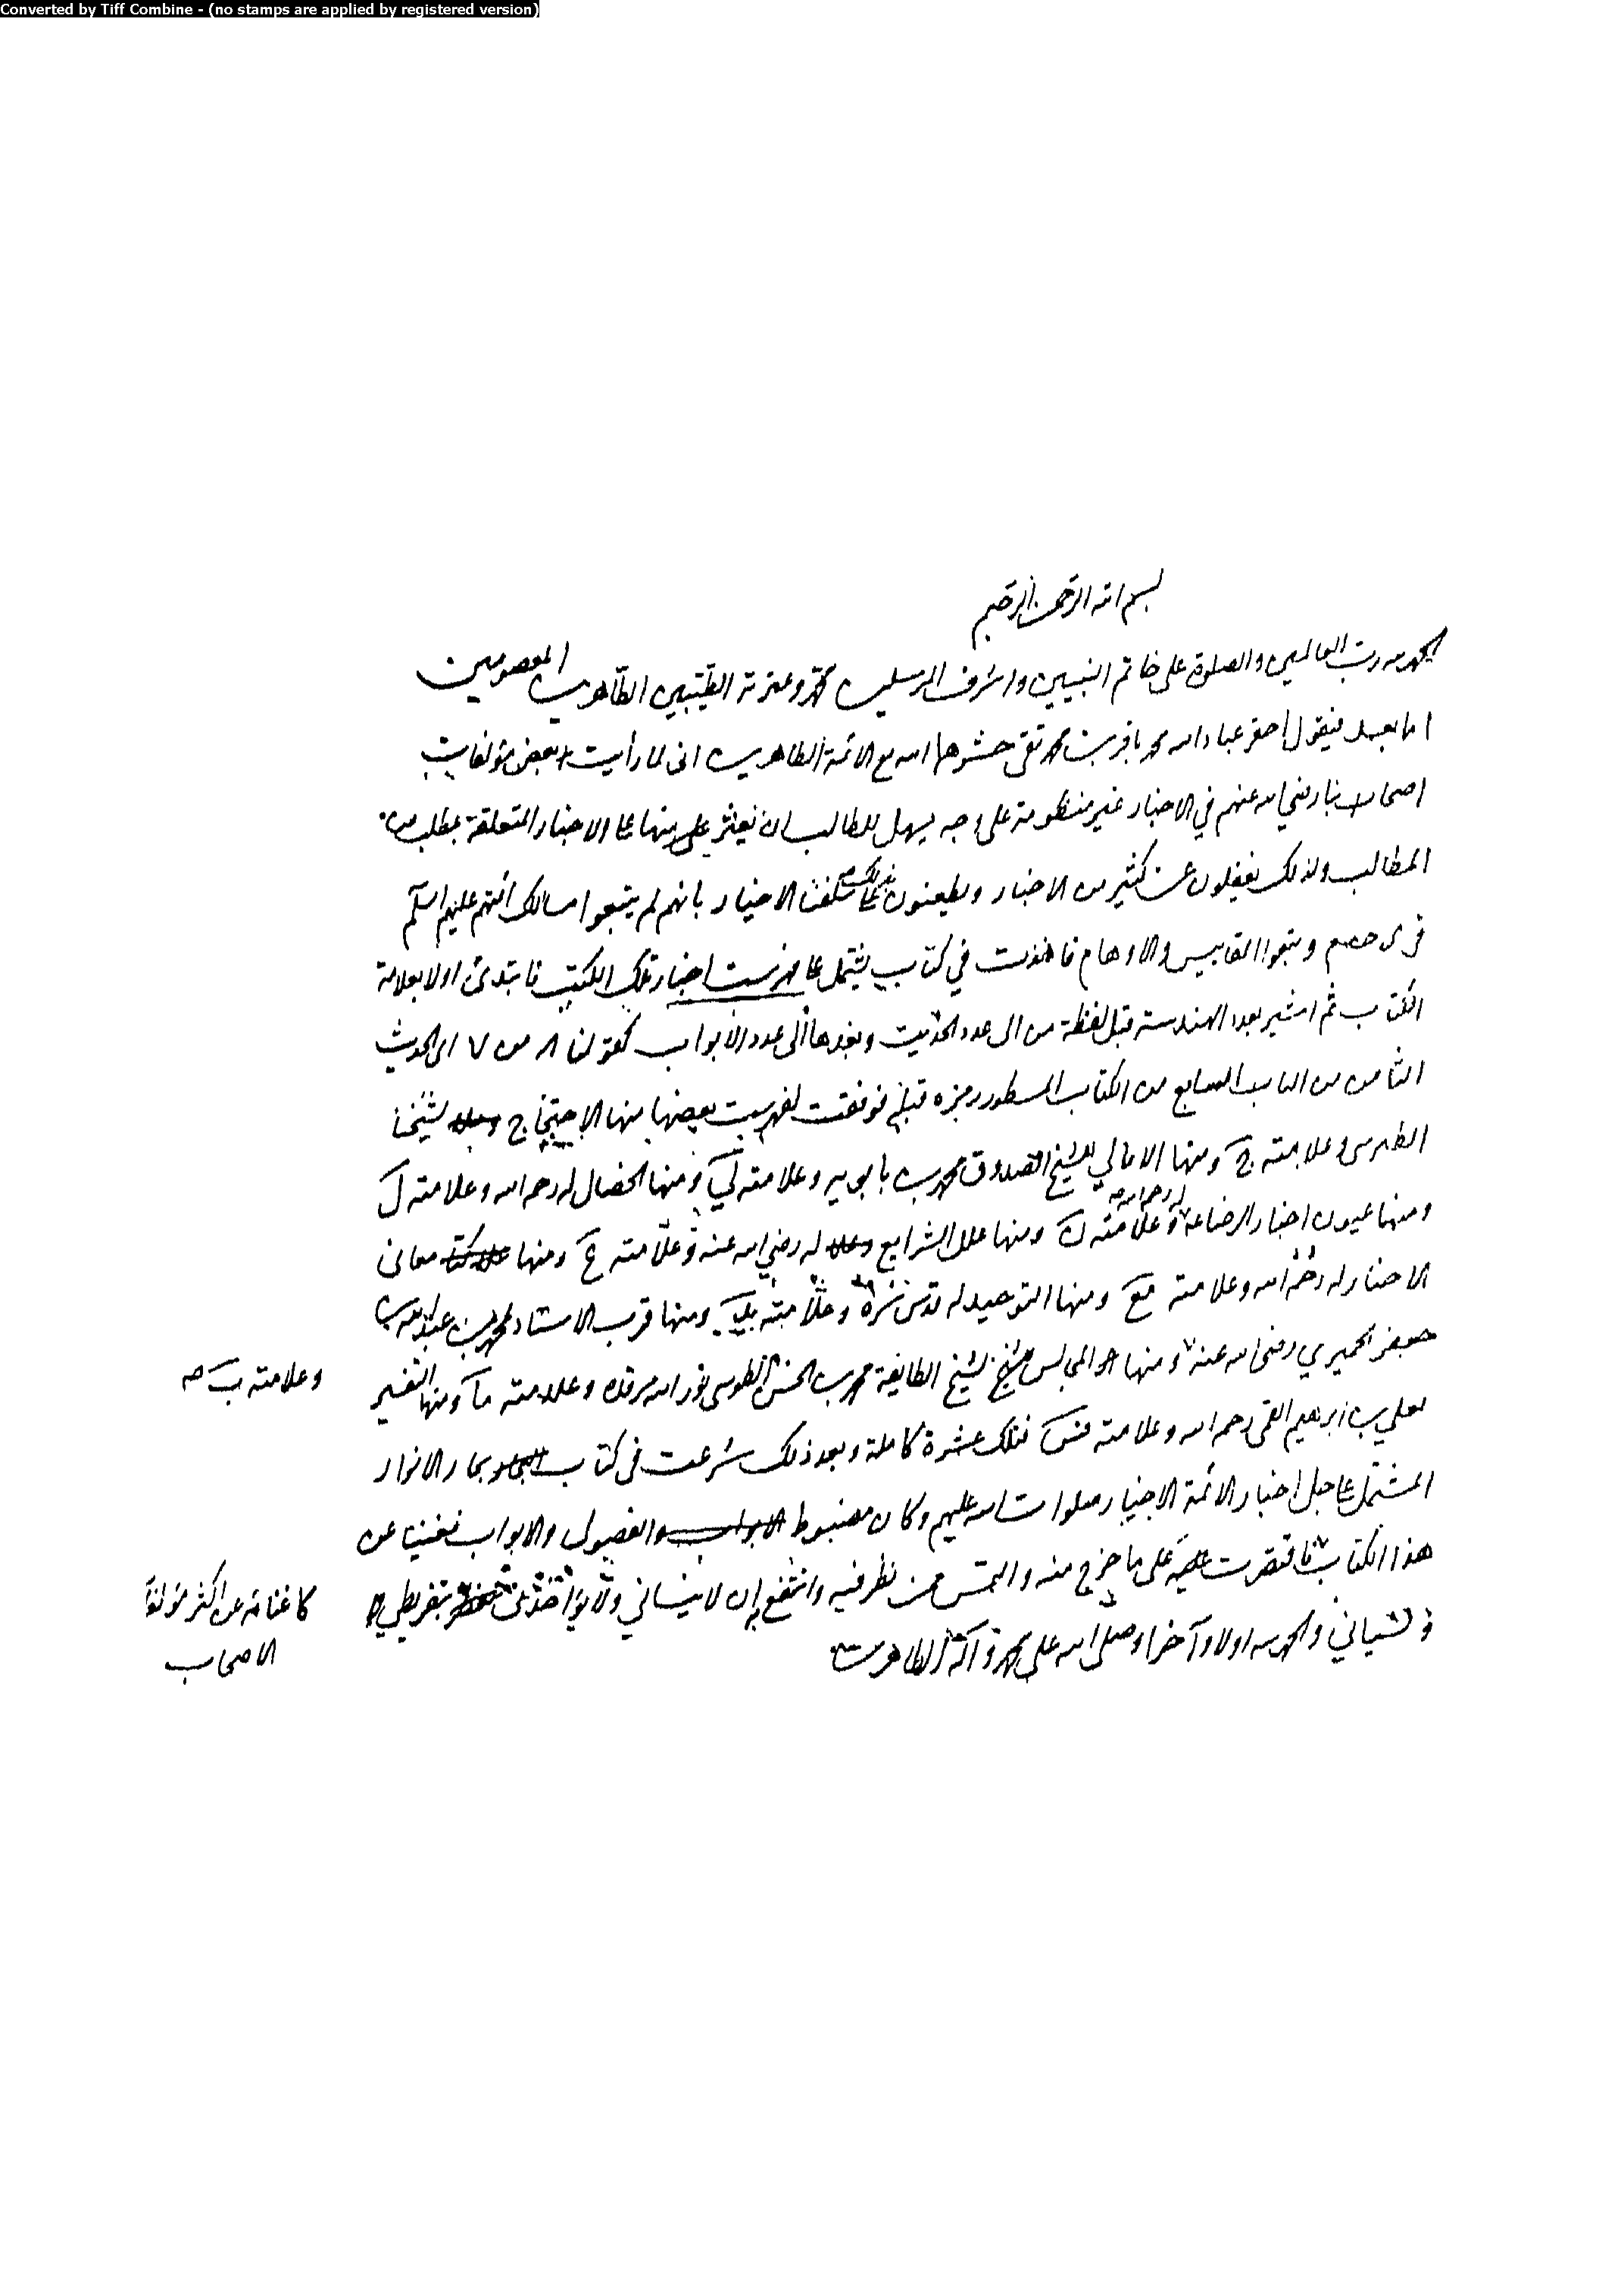 Converted by Tiff Combine - (no stamps are applied by registered version)
بسم الله الرحمن الرحيم
الحمد لله رب العالمين والصلوة على خاتم النبيين واشرف المرسلين محمد وعترته الطيبين الطاهرين المعصومين
اما بعد فيقول احقر عباد الله محمد باقر بن محمد تقي حشرهما الله مع الائمة الطاهرين اني لما رأيت بعض مؤلفات
اصحابنا رضي الله عنهم في الاخبار غير منظومة على وجه يسهل للطالب ان يعثر على الاخبار المتعلقة بمطلب من
المطالب ولذلك يغفلون عن كثير من الاخبار ويطعنون بذلك سلفنا الاخيار بانهم لم يتبعوا مسالك ائمتهم عليهم السلم
المقاييس والاوهام فاخذت في كتاب يشتمل على فهرست اخبار تلك الكتب فابتدئ اولا بعلامة
الكتاب ثم اشير بعدد الهندسة قبل لفظة من الى عدد الحديث وبعدها الى عدد الأبواب كقولنا ٨ من ٧ اى الحديث
الثامن من الباب السابع من الكتاب المسطور رمزه قبله فوفقت لفهرست بعضها منها الاحتجاج لشيخنا
الطبرسي وعلامته ج ومنها الامالي للشيخ الصدوق محمد بن بابويه وعلامته لي ومنها الخصال له رحمه الله وعلامته ل
ومنها عيون اخبار الرضا له رحمه الله وعلامته ن ومنها علل الشرايع له رضي الله عنه وعلامته ع ومنها معاني
الاخبار له رحمه الله وعلامته مع ومنها التوحيد له قدس سره وعلامته يد ومنها قرب الاسناد لمحمد بن عبد الله بن
جعفر الحميري رضي الله عنه وعلامته ب ومنها المجالس لشيخ الطايفة محمد بن الحسن الطوسي نور الله مرقده وعلامته ما ومنها التفسير
لعلي بن ابرهيم القمي رحمه الله وعلامته فس فتلك عشرة كاملة وبعد ذلك شرعت في كتاب بحار الانوار
المشتمل على جل اخبار الائمة الاخيار صلوات الله عليهم وكان مضبوط الفصول والابواب مغنيا عن
هذا الكتاب كاغنائه عن اكثر مؤلفات الاصحاب فاقتصرت على ما خرج منه والتمس ممن نظر فيه وانتفع به ان لا ينساني ولا يؤاخذني بتفريطي
ونسياني والحمد لله اولا وآخرا وصلى الله على محمد وآله الطاهرين